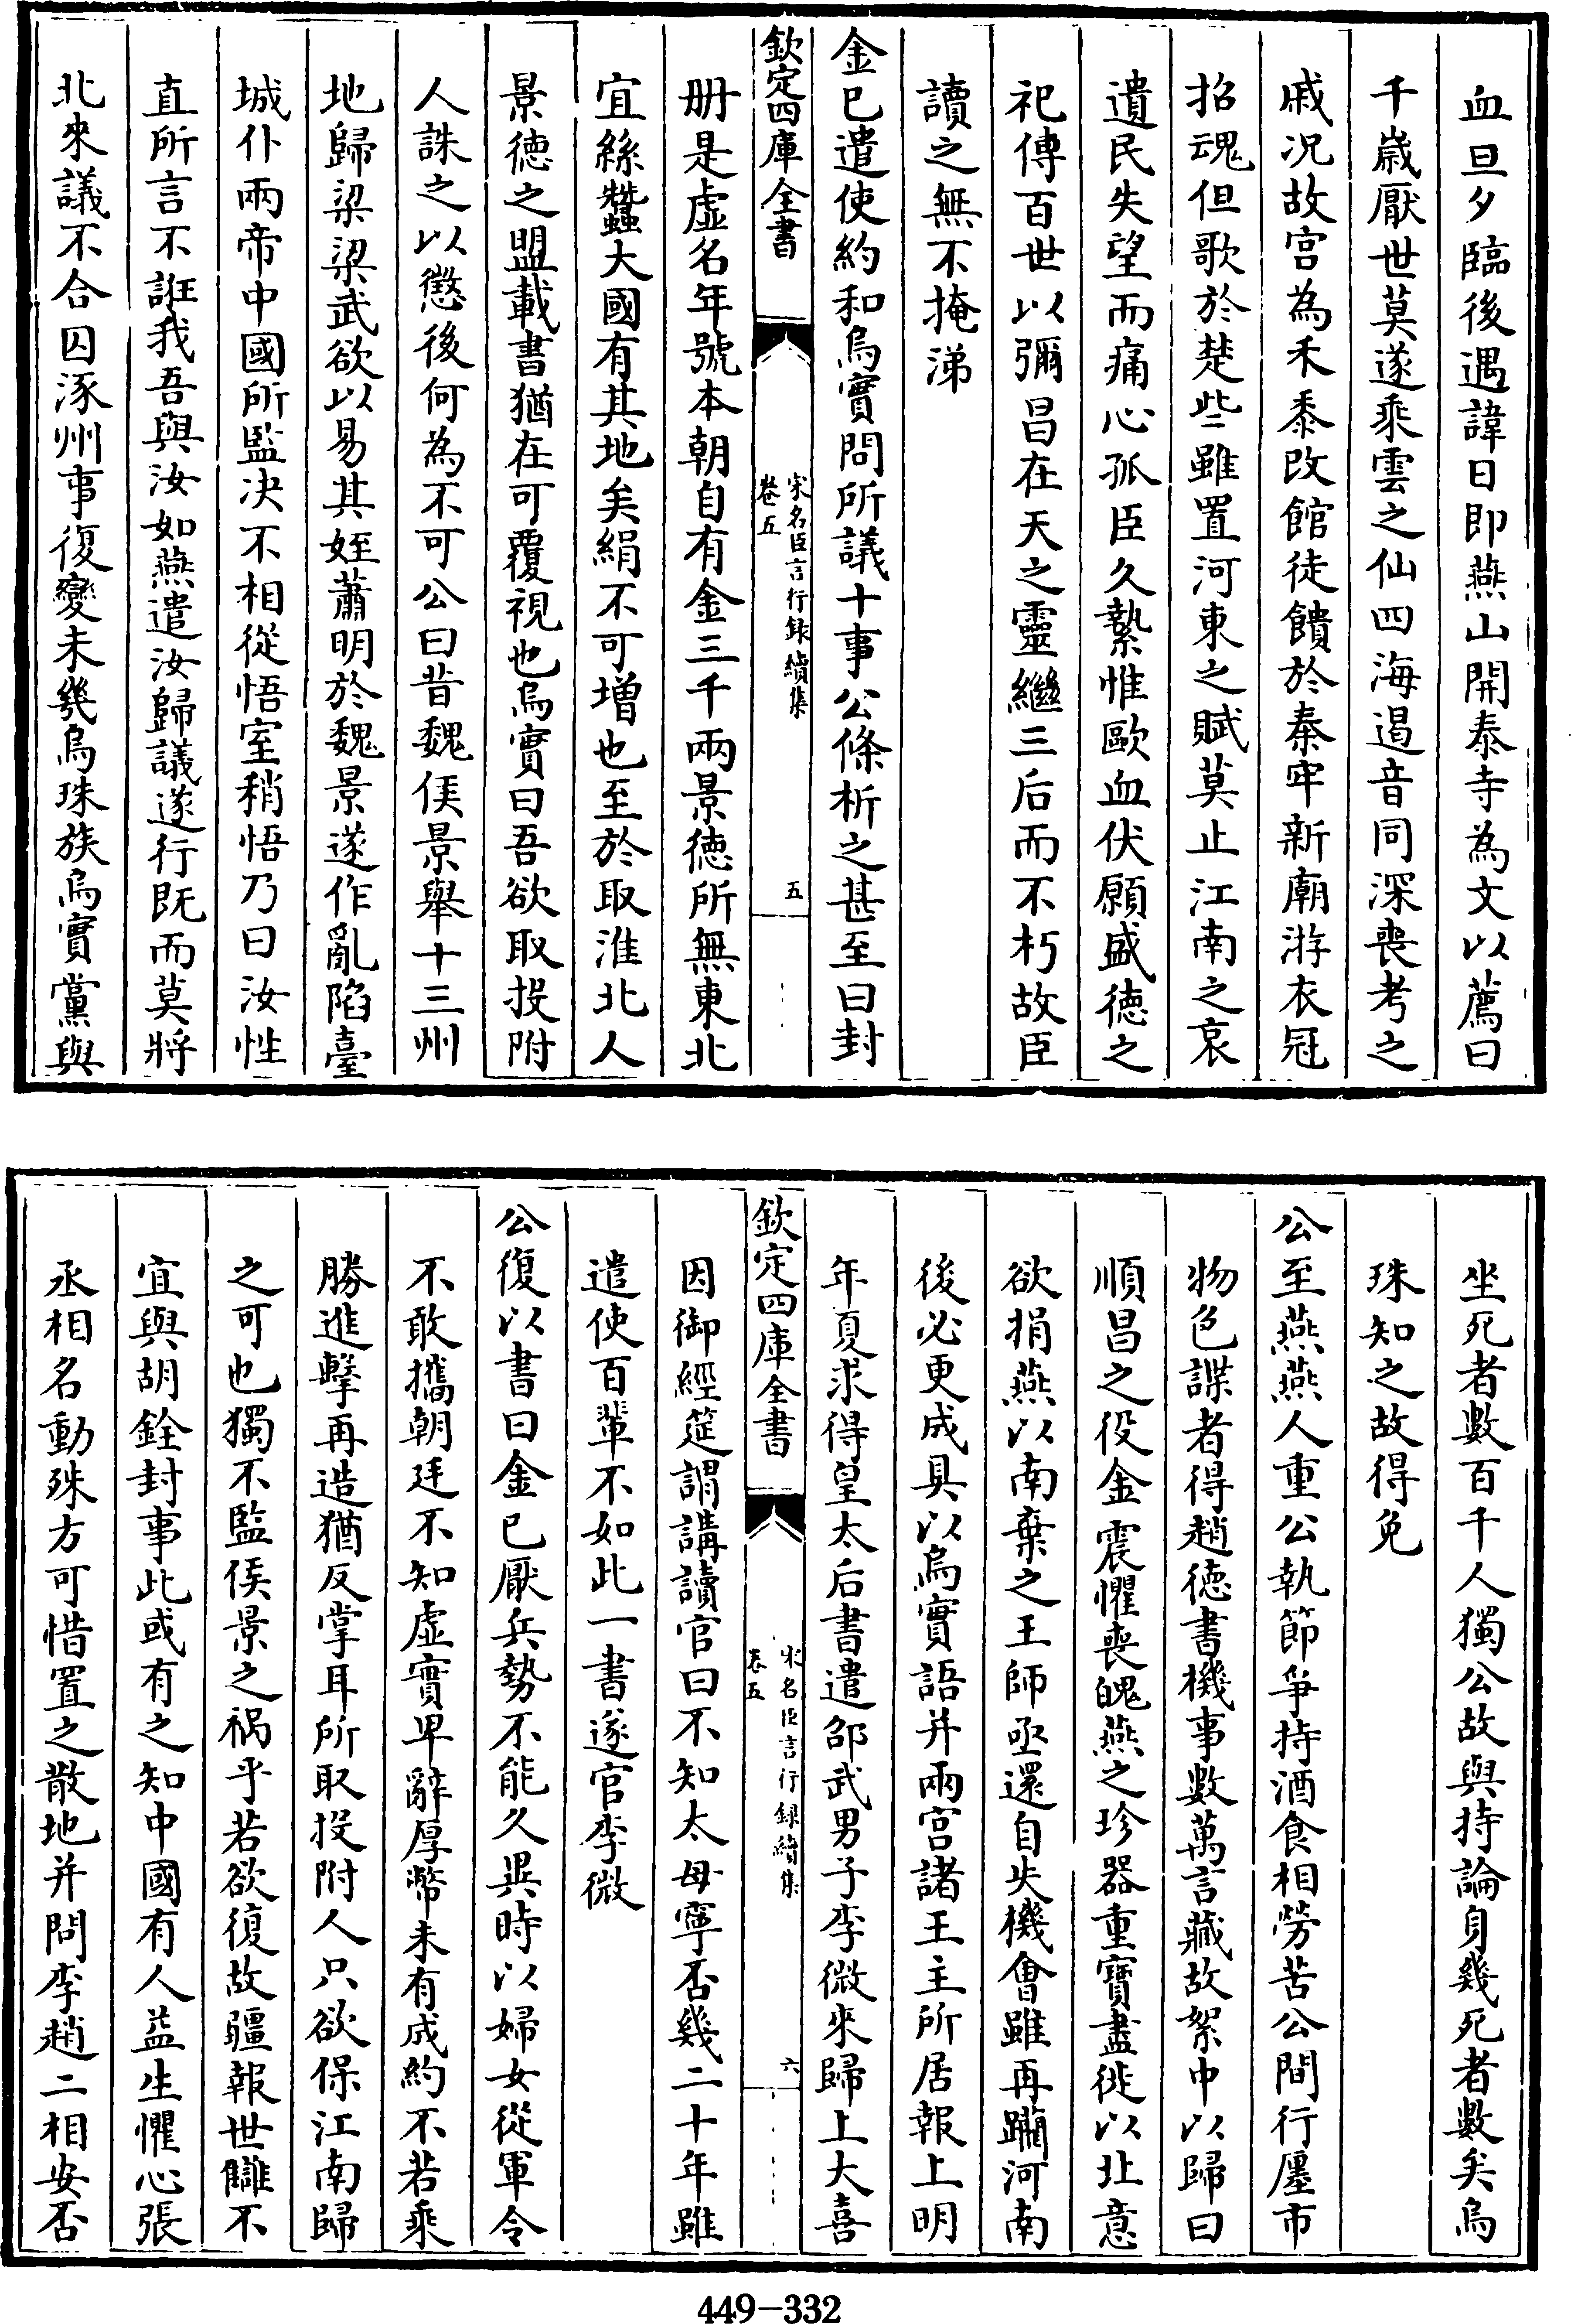 血旦夕臨後遇諱日即燕山開泰寺為文以薦曰
千嵗厭世莫遂乘雲之仙四海遏音同深喪考之
戚况故宫為禾黍改館徒饋於秦牢新廟游衣冠
招魂但歌於楚些雖置河東之賦莫止江南之哀
遺民失望而痛心孤臣久縶惟歐血伏願盛徳之
祀傳百世以彌昌在天之靈繼三后而不朽故臣
讀之無不掩涕
金已遣使約和烏實問所議十事公條析之甚至曰封
欽定四庫全書
宋名臣言行録續集
卷五
五
册是虚名年號本朝自有金三千兩景徳所無東北
宜絲蠶大國有其地矣絹不可增也至於取淮北人
景徳之盟載書猶在可覆視也烏實曰吾欲取投附
人誅之以懲後何為不可公曰昔魏侯景舉十三州
地歸梁梁武欲以易其姪蕭明於魏景遂作亂陷臺
城仆兩帝中國所監决不相從悟室稍悟乃曰汝性
直所言不誑我吾與汝如燕遣汝歸議遂行既而莫將
北來議不合囚涿州事復變未幾烏珠族烏實黨與
坐死者數百千人獨公故與持論身幾死者數矣烏
珠知之故得免
公至燕燕人重公執節爭持酒食相勞苦公間行廛市
物色諜者得趙徳書機事數萬言藏故絮中以歸曰
順昌之役金震懼喪魄燕之珍器重寶盡徙以北意
欲捐燕以南棄之王師亟還自失機會雖再躪河南
後必更成具以烏實語并兩宫諸王主所居報上明
年夏求得皇太后書遣邵武男子李微來歸上大喜
欽定四庫全書
宋名臣言行録續集
卷五
六
因御經筵謂講讀官曰不知太母寧否幾二十年雖
遣使百輩不如此一書遂官李微
公復以書曰金已厭兵勢不能久異時以婦女從軍今
不敢攜朝廷不知虚實卑辭厚幣未有成約不若乘
勝進擊再造猶反掌耳所取投附人只欲保江南歸
之可也獨不監侯景之禍乎若欲復故疆報世讎不
宜與胡銓封事此或有之知中國有人益生懼心張
丞相名動殊方可惜置之散地并問李趙二相安否
449-332